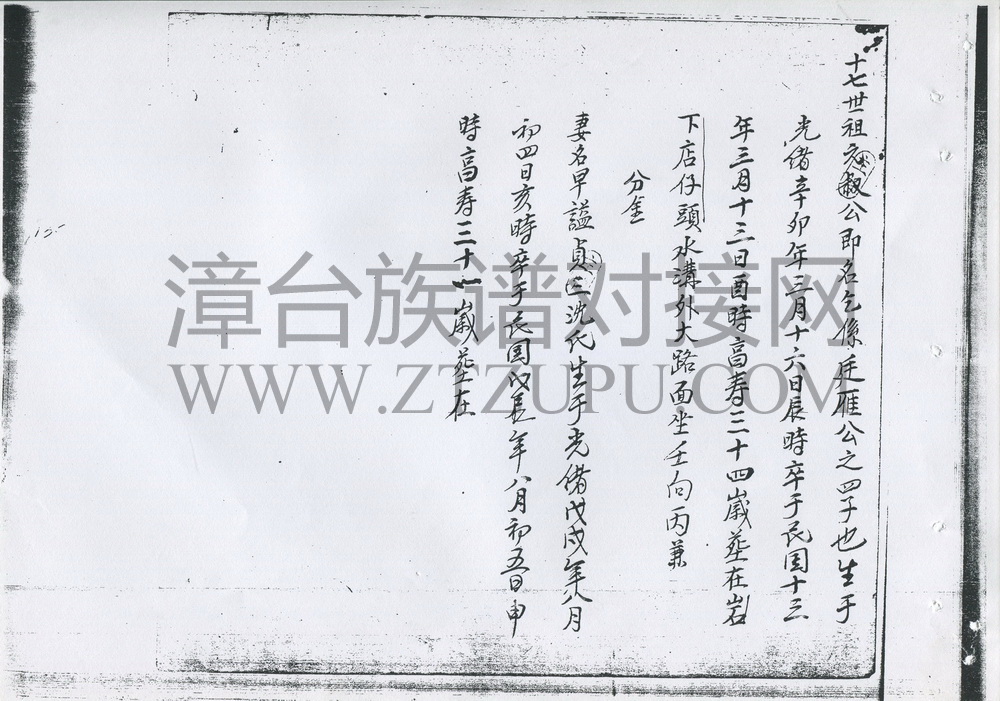 十七世祖元叔公即名乞係廷雁公之四子也生于
光緒辛卯年三月十六日辰時卒于民国十三
年三月十三日酉時高寿三十四歲葬在岩
下店仔頭水溝外大路面坐壬向丙兼
分金
妻名早謚貞三沈氏生于光緒戊戌年八月
初四日亥時卒于民国戊辰年八月初五日申
時高寿三十一歲葬在
漳台族谱对接网
WWW.ZTZUPU.COM